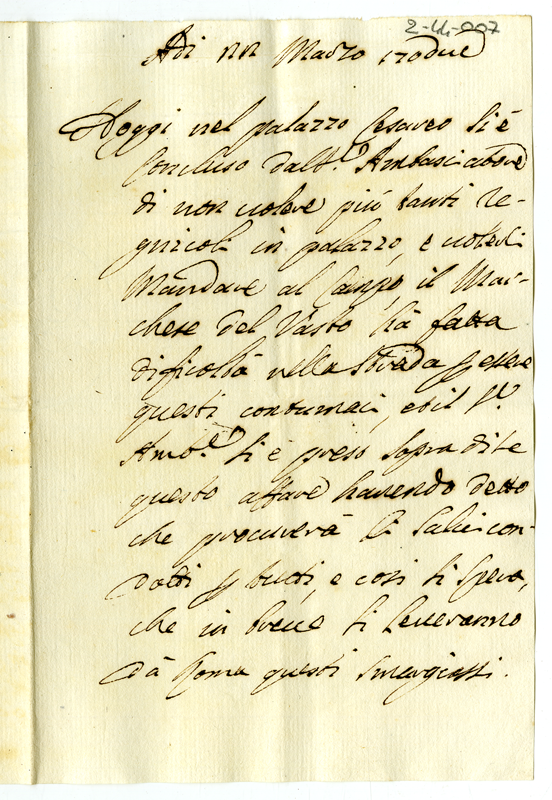 2-U-007
Adi nn Marzo 170due
Hoggi nel palazzo Cesareo si è
Concluso dall S.r Ambasciatore
di non volere più tanti re-
gnicoli in palazzo, e voler li
Mandare al Campo, il Mar-
chese del Vasto hà fatta
dificoltà nella Strada p essere
questi contumaci, et il S.r
Amb.r si è preso sopra di se
questo affare havendo detto
che procurerà li Salvicon-
dotti p tutti, e così si spera,
che in breve si leveranno
dà Roma questi